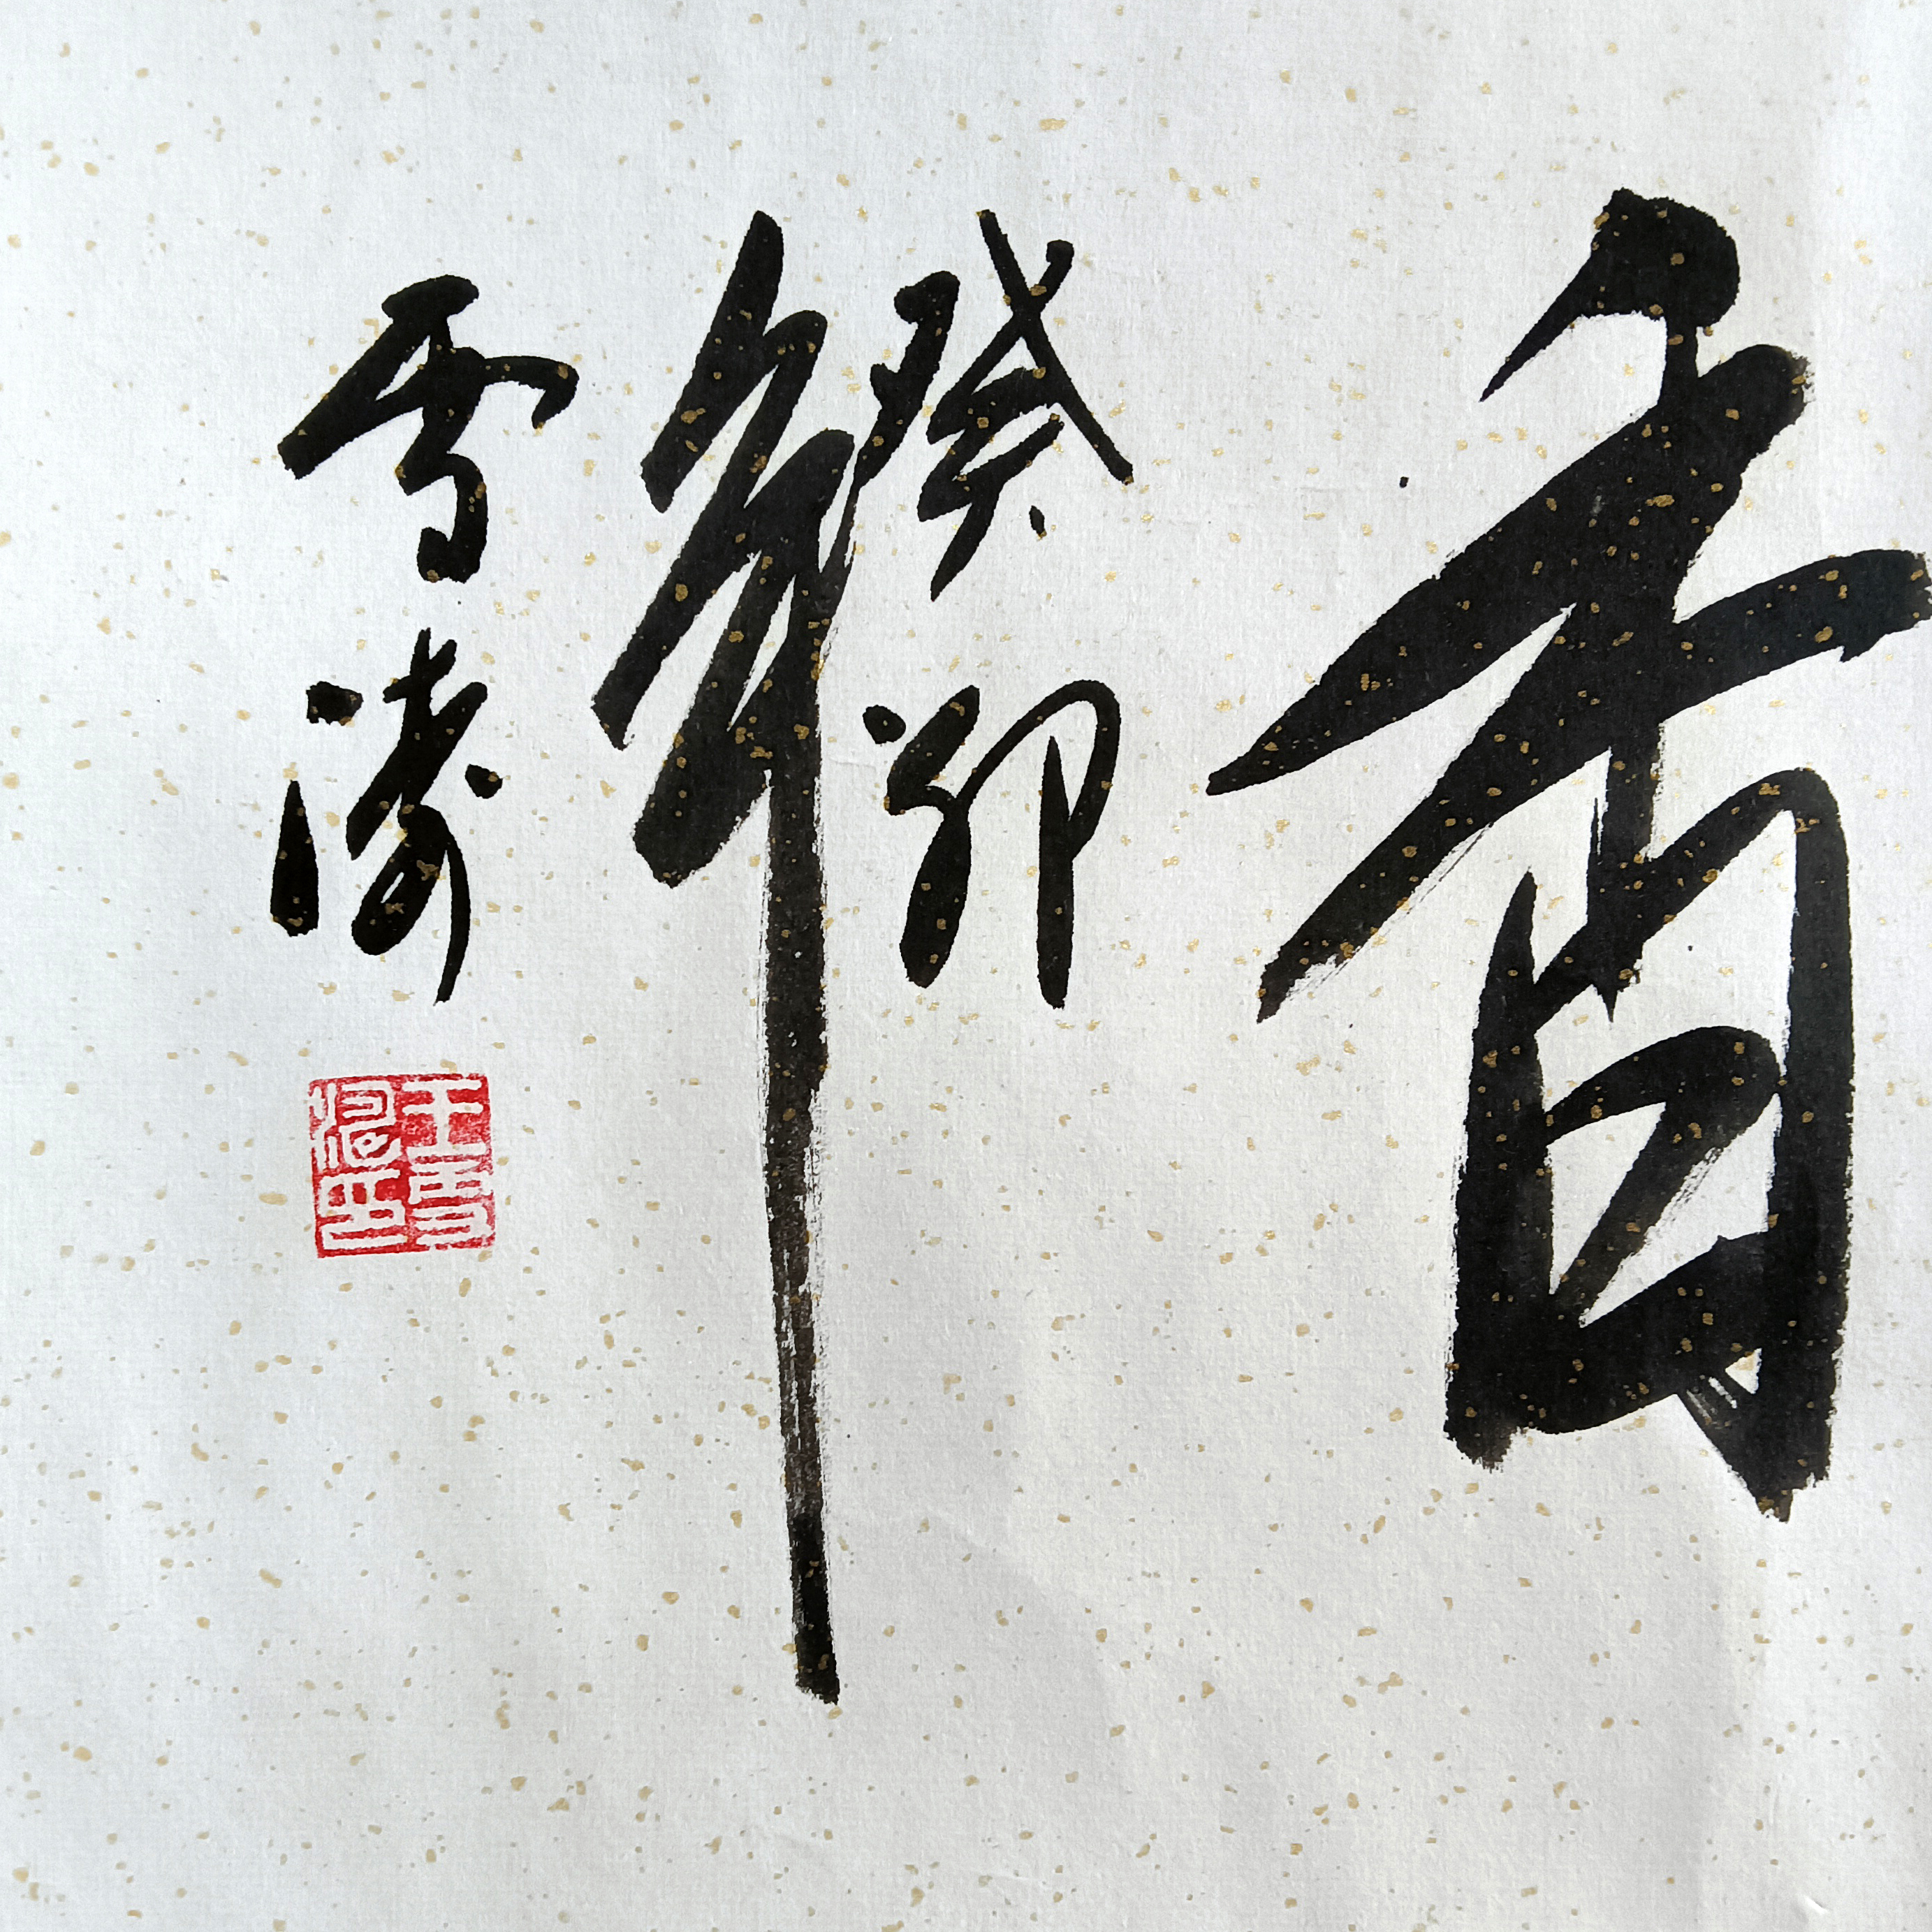 香
癸卯
年
雪
王雪
印